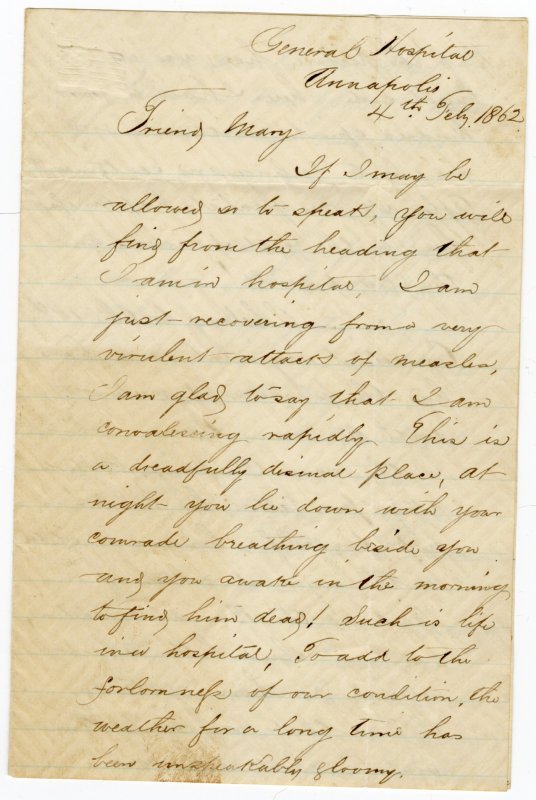 General Hospital
Annapolis
4th Feby. 1862.
Friend Mary
If I may be
allowed so to speak, you will
find from the heading that
I am in hospital, I am
just recovering from a very
virulent attack of measles,
I am glad to say that I am
convalescing rapidly This is
a dreadfully dismal place, at
night you lie down with your
comrade breathing beside you
and you awake in the morning
to find him dead! Such is life
in a hospital, To add to the
forlorness of our condition, the
weather for a long time has
been unspeakably gloomy.